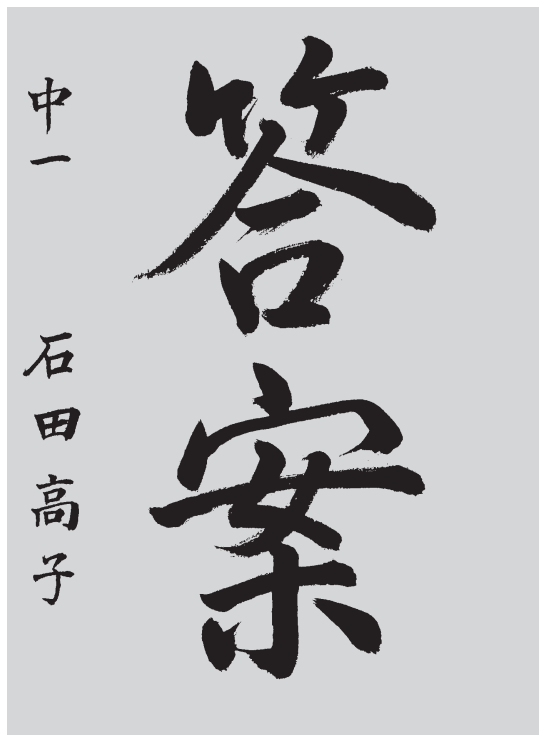 答案
中一 石田高子